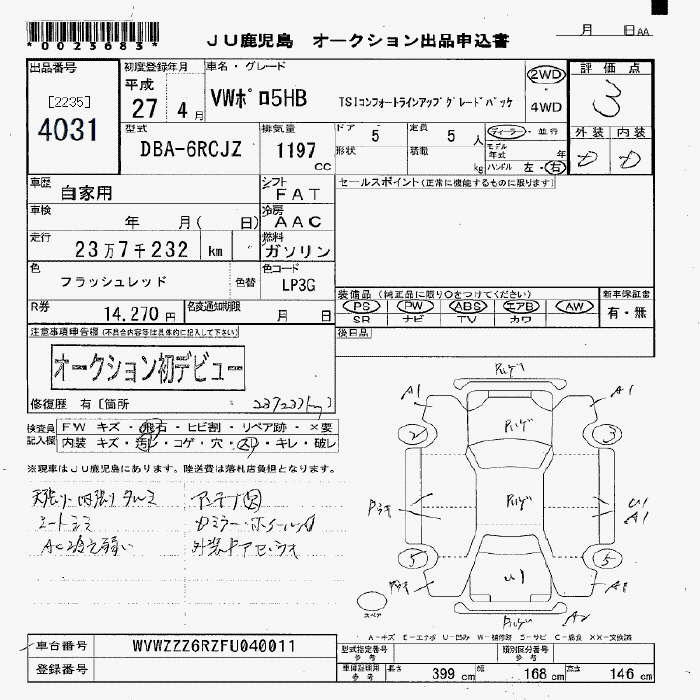 *0023683*
JU鹿児島 オークション出品申込書
月 日AA
出品番号
[2235]
4031
初度登録年月
平成
27 4月
車名・グレード
VWポロ5HB TSIコンフォートラインアップグレードパッケ
2WD
・
4WD
評価点
3
型式
DBA-6RCJZ
排気量
1197 cc
ドア 5
定員 5人
形状
積載 kg
ディーラー・並行
モデル年式 年
ハンドル 左・右
外装 内装
D D
車歴
自家用
シフト
FAT
セールスポイント(正常に機能するものに限ります)
車検
年 月( 日)
冷房
AAC
走行
23万7千232 km
燃料
ガソリン
色
フラッシュレッド
色替
色コード
LP3G
R券
14,270円
名変通知期限
月 日
装備品(純正品に限り○をつけてください)
PS PW ABS エアB AW
SR ナビ TV カワ
新車保証書
有・無
後日品
注意事項申告欄(不具合内容等は具体的に記入して下さい)
オークション初デビュー
修復歴 有[箇所
237233km
検査員記入欄
FW キズ・飛石・ヒビ割・リペア跡・×要
内装 キズ・汚れ・コゲ・穴・スレ・キレ・破レ
※現車はJU鹿児島にあります。陸送費は落札店負担となります。
天張り・内張りタルミ
シートシミ
AC冷え弱い
A1
A1
2
3
U1
A1
5
5
U1
A2
スペア
A-キズ E-エクボ U-凹み W-補修跡 S-サビ C-腐食 XX-交換済
車台番号
WVWZZZ6RZFU040011
登録番号
型式指定番号 参考
類別区分番号 参考
車庫証明用 参考
長さ 399 cm 幅 168 cm 高さ 146 cm